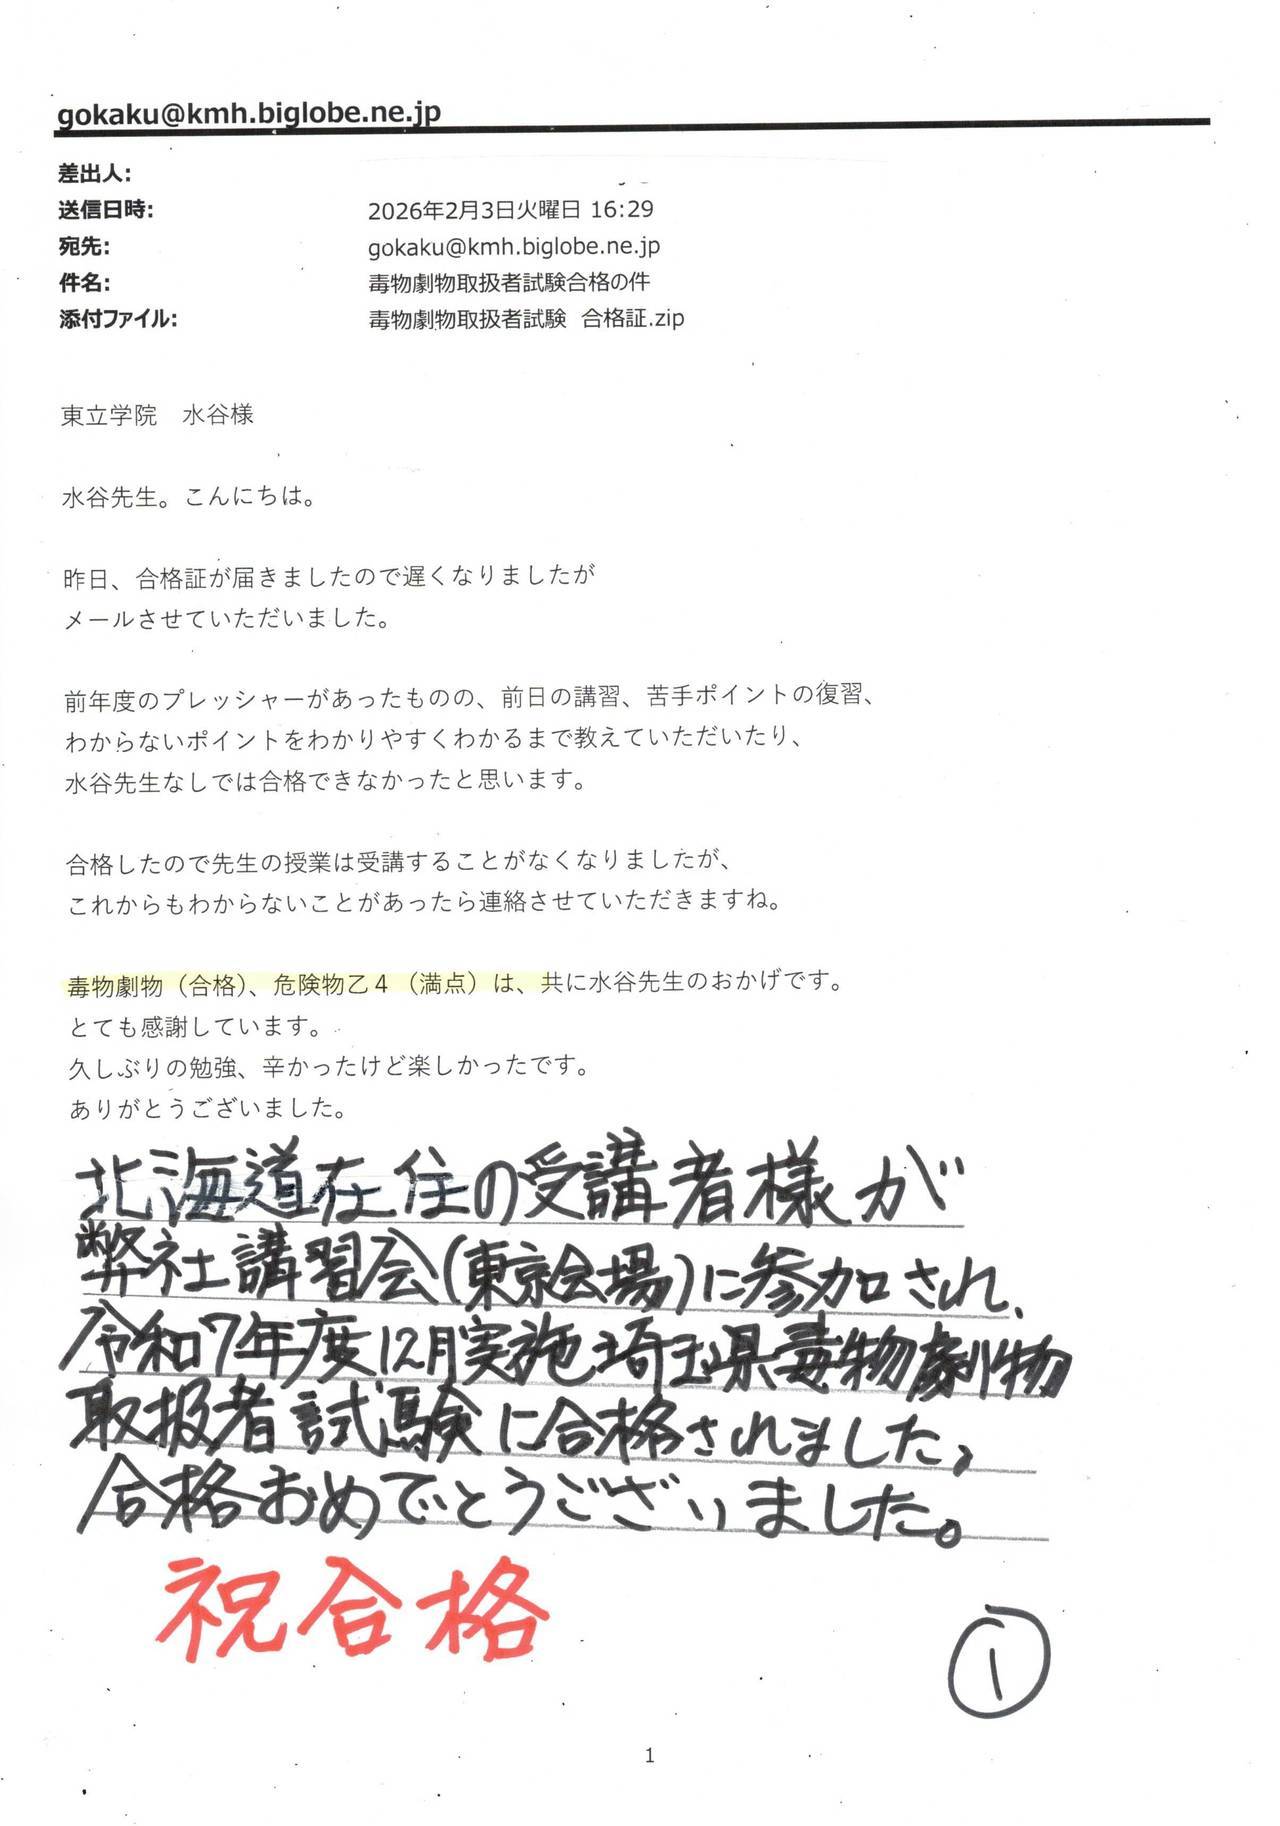 gokaku@kmh.biglobe.ne.jp
差出人:
送信日時: 2026年2月3日火曜日 16:29
宛先: gokaku@kmh.biglobe.ne.jp
件名: 毒物劇物取扱者試験合格の件
添付ファイル: 毒物劇物取扱者試験 合格証.zip
東立学院　水谷様
水谷先生。こんにちは。
昨日、合格証が届きましたので遅くなりましたが
メールさせていただいました。
前年度のプレッシャーがあったものの、前日の講習、苦手ポイントの復習、
わからないポイントをわかりやすくわかるまで教えていただいたり、
水谷先生なしでは合格できなかったと思います。
合格したので先生の授業は受講することがなくなりましたが、
これからもわからないことがあったら連絡させていただきますね。
毒物劇物（合格）、危険物乙４（満点）は、共に水谷先生のおかげです。
とても感謝しています。
久しぶりの勉強、辛かったけど楽しかったです。
ありがとうございました。
北海道在住の受講者様が
弊社講習会(東京会場)に参加され、
令和7年度12月実施埼玉県毒物劇物
取扱者試験に合格されました。
合格おめでとうございました。
祝合格
①
1